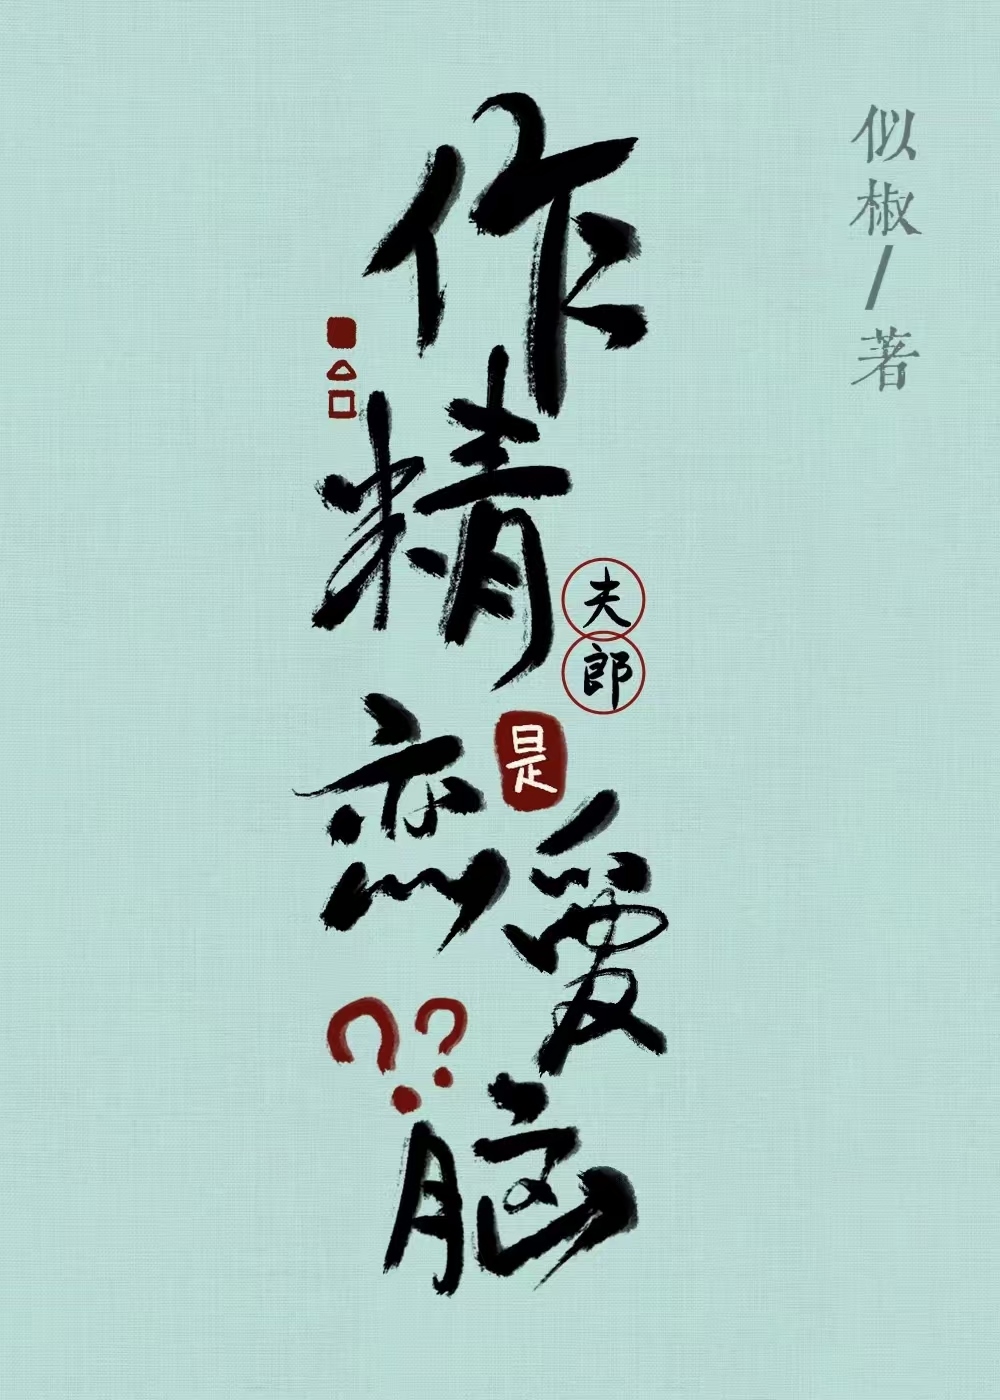 作精
夫郎
是
恋爱脑
??
似椒/著